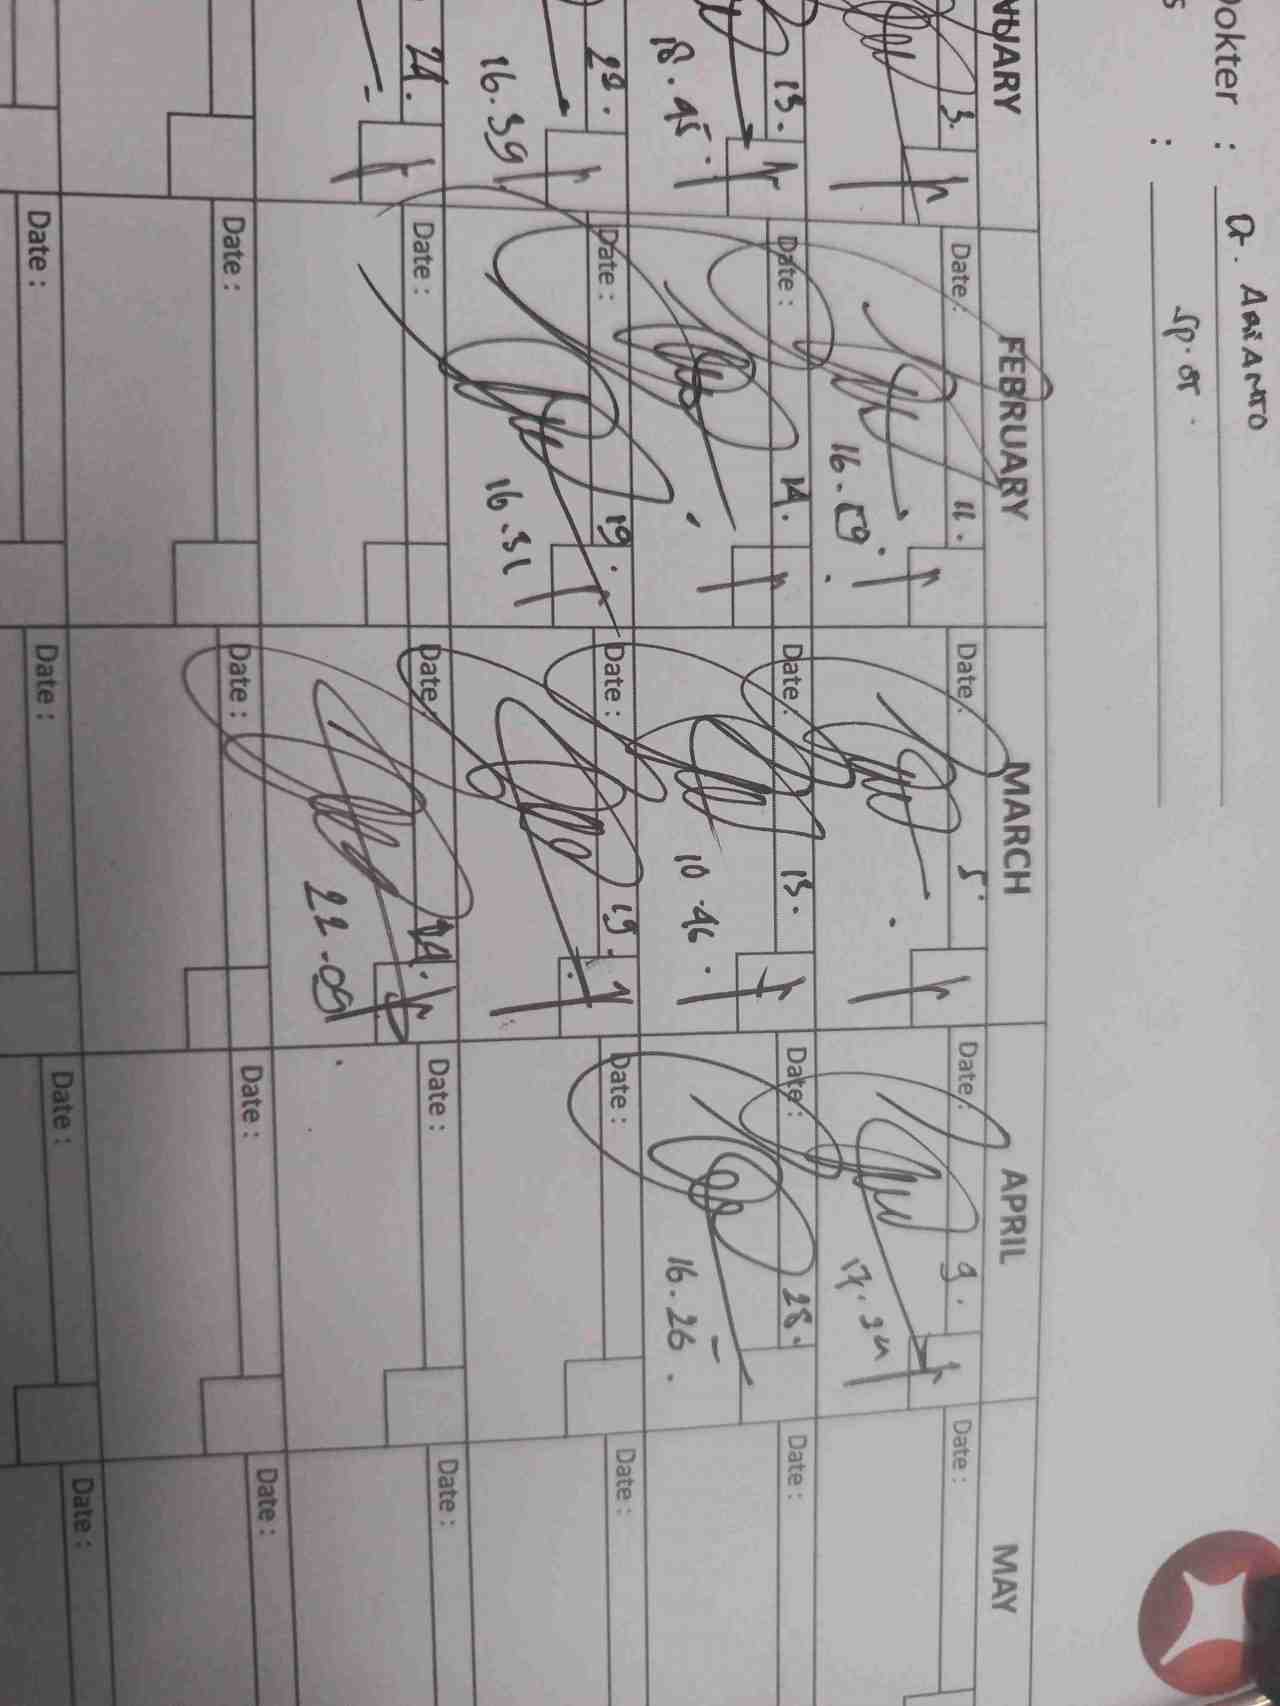 Dokter : dr. ARIANTO
s : sp. OT
NUARY FEBRUARY MARCH APRIL MAY
3. Date: 11. Date: 5. Date: 9. Date:
16.59. 17.34
13. Date: 14. Date: 13. Date: 28. Date:
18.45. 10.46. 16.26.
22. Date: 19. Date: 19. Date: Date:
16.39 16.31
24. Date: Date: 24. Date: Date:
22.09
Date: Date: Date: Date:
Date: Date: Date: Date: